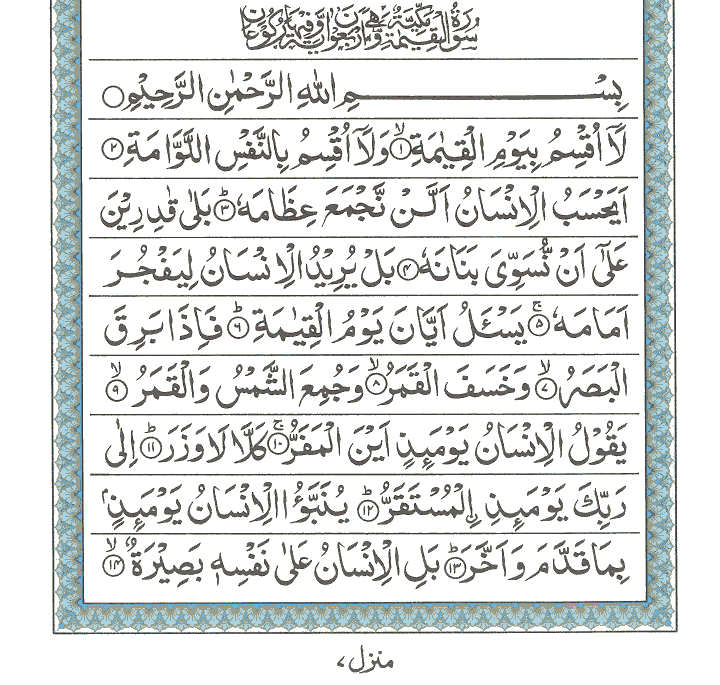 سُوْرَةُ الْقِيٰمَةِ مَكِّيَّةٌ وَّهِيَ اَرْبَعُوْنَ اٰيَةً وَّفِيْهَا رُكُوْعَانِ
بِسْمِ اللّٰهِ الرَّحْمٰنِ الرَّحِيْمِ ○
لَاۤ اُقْسِمُ بِيَوْمِ الْقِيٰمَةِ ۙ﴿۱﴾ وَلَاۤ اُقْسِمُ بِالنَّفْسِ اللَّوَّامَةِ ﴿۲﴾
اَيَحْسَبُ الْاِنْسَانُ اَلَّنْ نَّجْمَعَ عِظَامَهٗ ؕ﴿۳﴾ بَلٰى قٰدِرِيْنَ
عَلٰۤى اَنْ نُّسَوِّىَ بَنَانَهٗ ﴿۴﴾ بَلْ يُرِيْدُ الْاِنْسَانُ لِيَفْجُرَ
اَمَامَهٗ ۚ﴿۵﴾ يَسْـَٔلُ اَيَّانَ يَوْمُ الْقِيٰمَةِ ؕ﴿۶﴾ فَاِذَا بَرِقَ
الْبَصَرُ ۙ﴿۷﴾ وَخَسَفَ الْقَمَرُ ۙ﴿۸﴾ وَجُمِعَ الشَّمْسُ وَالْقَمَرُ ۙ﴿۹﴾
يَقُوْلُ الْاِنْسَانُ يَوْمَئِذٍ اَيْنَ الْمَفَرُّ ۚ﴿۱۰﴾ كَلَّا لَا وَزَرَ ؕ﴿۱۱﴾ اِلٰى
رَبِّكَ يَوْمَئِذِ ۨالْمُسْتَقَرُّ ؕ﴿۱۲﴾ يُنَبَّؤُا الْاِنْسَانُ يَوْمَئِذٍۭ
بِمَا قَدَّمَ وَاَخَّرَ ؕ﴿۱۳﴾ بَلِ الْاِنْسَانُ عَلٰى نَفْسِهٖ بَصِيْرَةٌ ۙ﴿۱۴﴾
منزل ۷